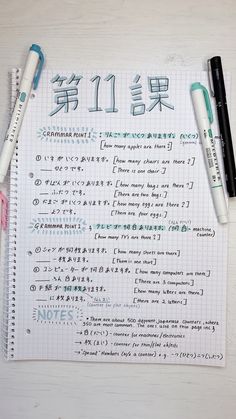 第11課
GRAMMAR POINT 1 : りんごがいくつありますか。(いくつ)
[how many apples are there?]
① いすがいくつありますか。 [how many chairs are there?]
___ ひとつです。 [There is one chair.]
② かばんがいくつありますか。 [how many bags are there?]
___ ふたつです。 [There are two bags.]
③ たまごがいくつありますか。 [how many eggs are there?]
___ よっつです。 [There are four eggs.]
GRAMMAR POINT 1 : テレビが何台ありますか。
[how many TVs are there?]
① シャツが何枚ありますか。 [how many shirts are there?]
___ 一枚あります。 [There is one shirt]
② コンピューターが何台ありますか。 [how many computers are there?]
[There are 3 computers]
③ 手紙が何枚ありますか。 [how many letters are there?]
[there are 2 letters.]
(counter for flat objects)
NOTES
• There are about 500 different Japanese counters, where
350 are most common. The ones used on this page incl:
→ 台 (だい) - counter for machines/electronics
→ 枚 (まい) - counter for thin/flat objects